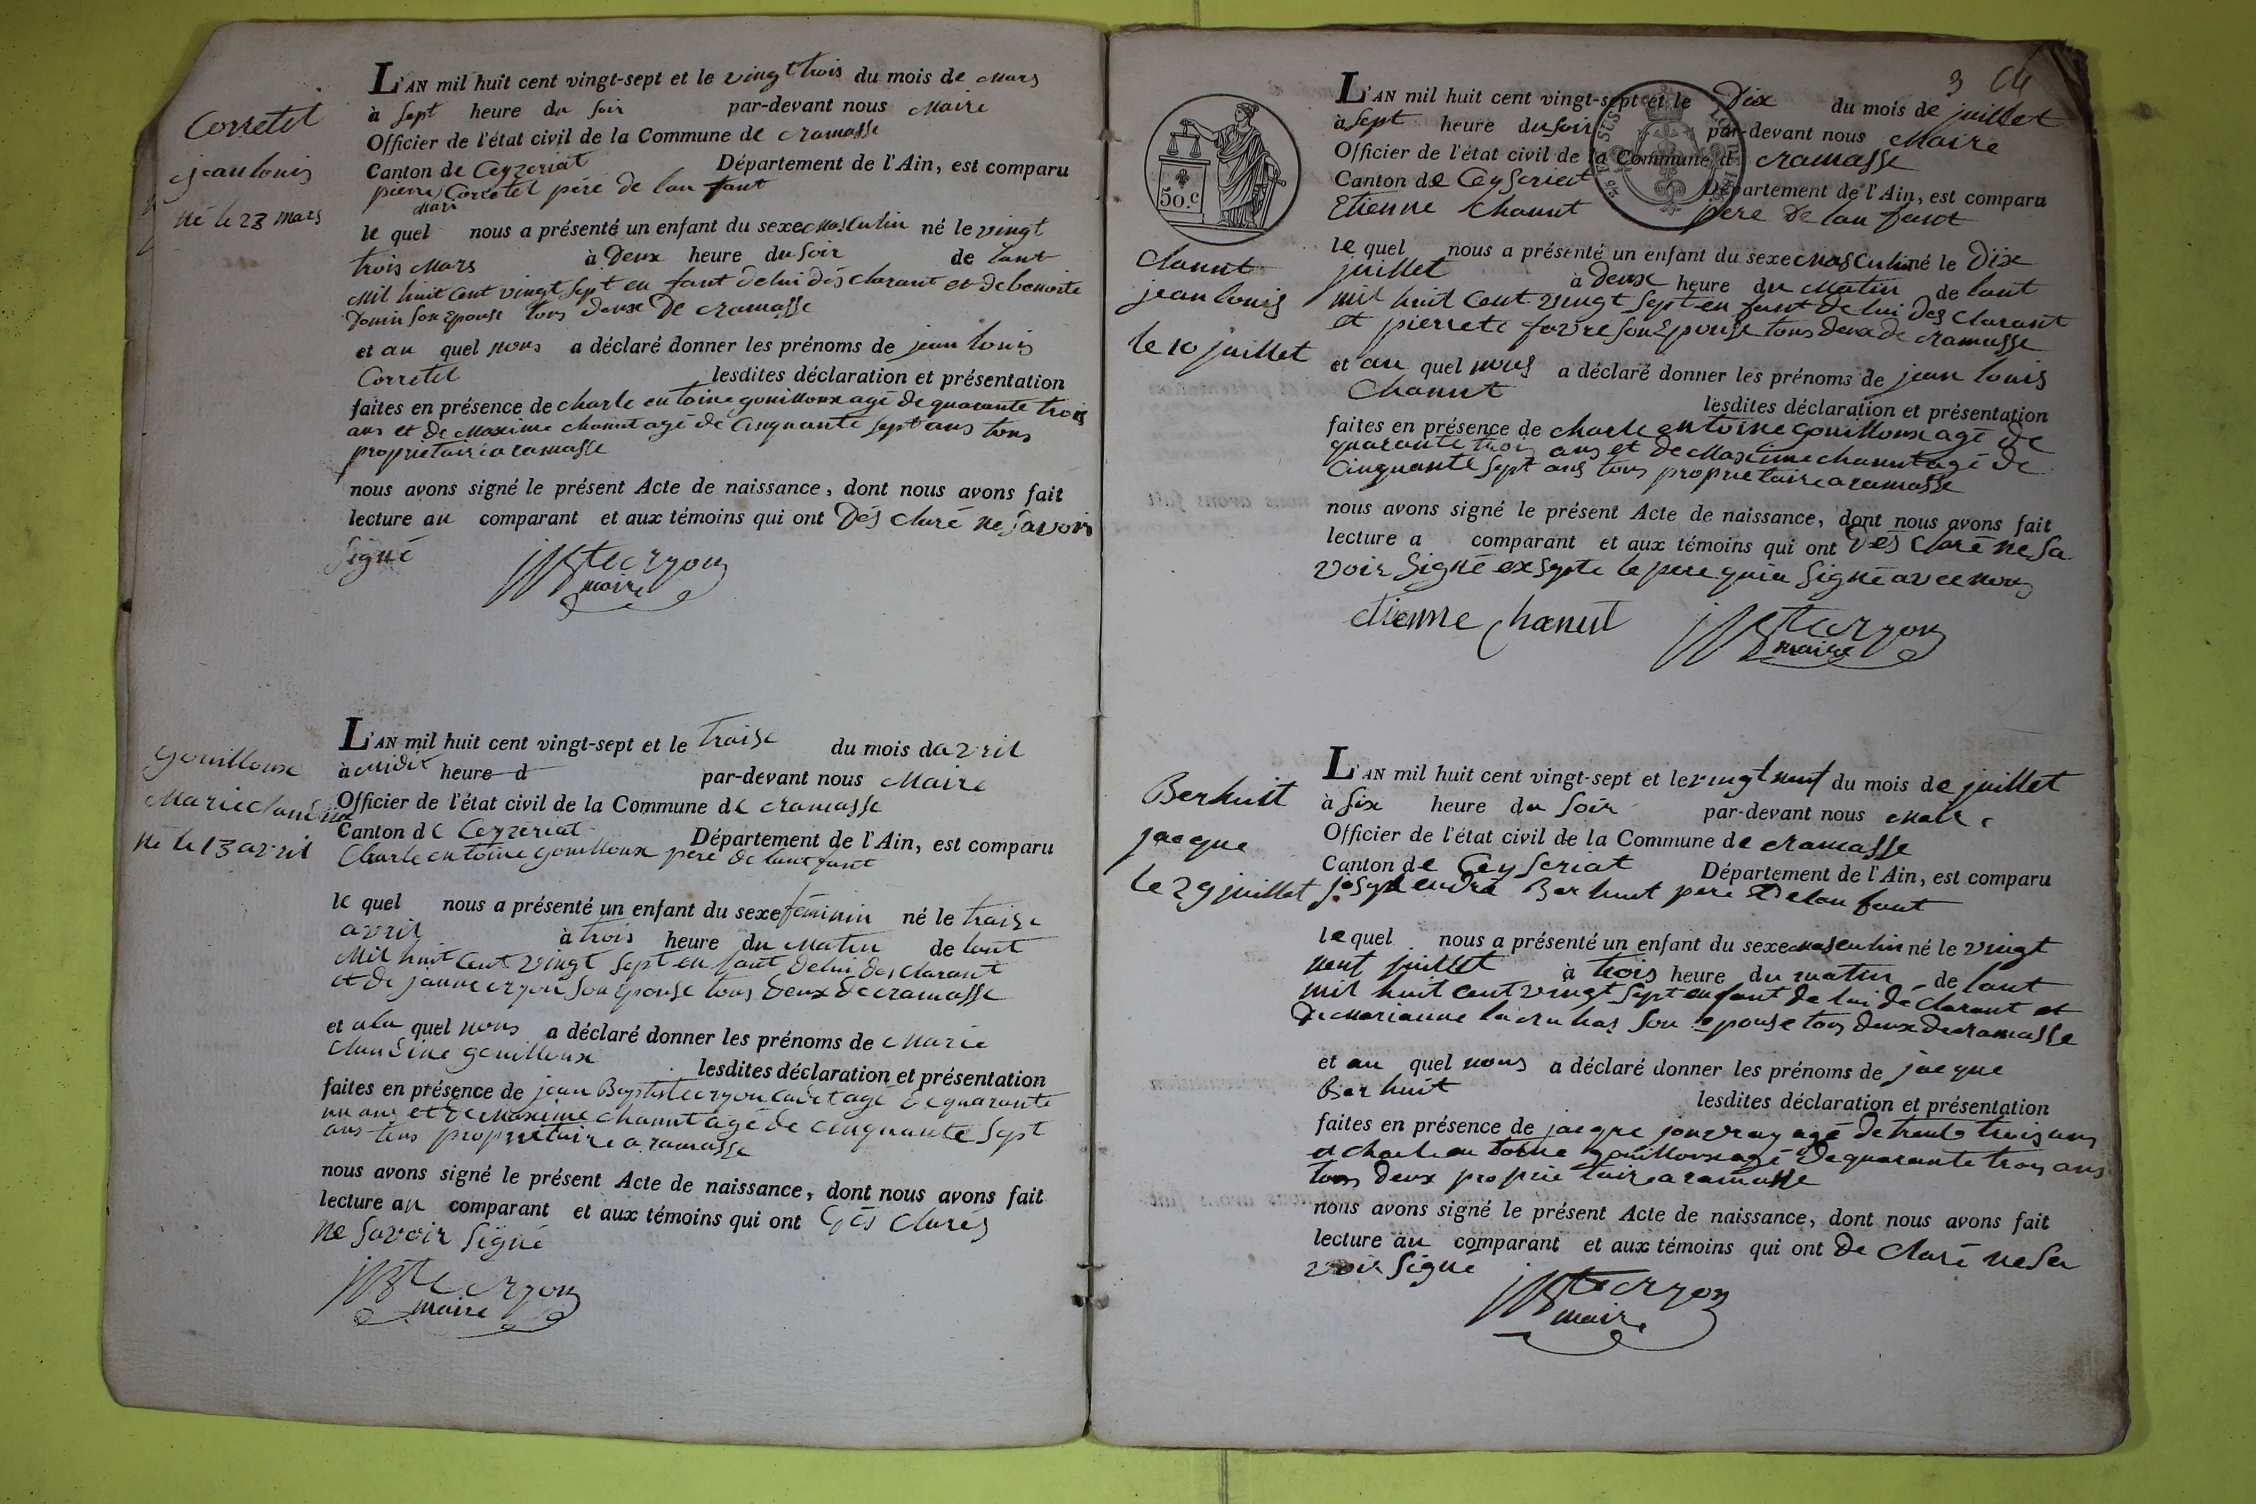 Corretet
jean louis
né le 23 mars
L'AN mil huit cent vingt-sept et le vingt trois du mois de mars
à sept heure du soir par-devant nous Maire
Officier de l'état civil de la Commune de cramasse
Canton de Ceyzeriat Département de l'Ain, est comparu
pierre mari Corretet pére de lan fant
le quel nous a présenté un enfant du sexe masculin né le vingt
trois mars à Deux heure du soir de lant
mil huit Cent vingt sept en fant de lui dés clarant et de benoite
son Epouse tous deux De cramasse
et au quel nous a déclaré donner les prénoms de jean louis
Corretet lesdites déclaration et présentation
faites en présence de charle entoine gouilloux agé de quarante trois
ans et de Maxime chanut agé de Cinquante sept ans tous
proprietaire a ramasse
nous avons signé le présent Acte de naissance, dont nous avons fait
lecture au comparant et aux témoins qui ont Dés claré ne savoir
signé
maire
gouilloux
Marie claudine
né le 13 avril
L'AN mil huit cent vingt-sept et le traise du mois d avril
à midit heure d par-devant nous Maire
Officier de l'état civil de la Commune de cramasse
Canton de Ceyzeriat Département de l'Ain, est comparu
Charle entoine gouilloux pere de lant fant
le quel nous a présenté un enfant du sexe féminin né le traise
avril à trois heure du Matin de lant
Mil huit Cent vingt sept en fant de lui des clarant
et de janne eryon son Epouse tous Deux de cramasse
et a la quel nous a déclaré donner les prénoms de Marie
claudine gouilloux lesdites déclaration et présentation
faites en présence de jean Baptiste eryon cadet agé de quarante
un ans et de Maxime chanut agé de cinquante sept
ans tous proprietaire a ramasse
nous avons signé le présent Acte de naissance, dont nous avons fait
lecture au comparant et aux témoins qui ont dés clarés
ne savoir signé
maire
3
50.c
chanut
jean louis
le 10 juillet
L'AN mil huit cent vingt-sept et le Dix du mois de juillet
à sept heure du soir par-devant nous Maire
Officier de l'état civil de la Commune d cramasse
Canton de Ceyseriat Département de l'Ain, est comparu
Etienne Chanut pere de lan fant
le quel nous a présenté un enfant du sexe masculin né le Dix
juillet à deux heure du Matin de lant
mil huit Cent vingt sept en fant de lui des clarant
et pierrete favre son Epouse tous deux de cramasse
et au quel nous a déclaré donner les prénoms de jean louis
Chanut lesdites déclaration et présentation
faites en présence de charle entoine gouilloux agé de
quarante trois ans et de Maxime chanut agé de
Cinquante sept ans tous proprietaire a ramasse
nous avons signé le présent Acte de naissance, dont nous avons fait
lecture a comparant et aux témoins qui ont Dés claré ne sa
voir signé exsepte le pere qui a signé avec nous
etienne chanut
maire
Berhuit
jacque
le 29 juillet
L'AN mil huit cent vingt-sept et le vingt neuf du mois de juillet
à six heure du soir par-devant nous Maire
Officier de l'état civil de la Commune de cramasse
Canton de Ceyseriat Département de l'Ain, est comparu
Berhuit pere De lan fant
le quel nous a présenté un enfant du sexe masculin né le vingt
neuf juillet à trois heure du matin de lant
mil huit Cent vingt sept en fant de lui déclarant et
de Marianne son epouse tous deux de cramasse
et au quel nous a déclaré donner les prénoms de jacque
Berhuit lesdites déclaration et présentation
faites en présence de jacque jouvray agé de trente trois ans
et charle en toine gouilloux agé de quarante trois ans
tous deux proprietaire a ramasse
nous avons signé le présent Acte de naissance, dont nous avons fait
lecture au comparant et aux témoins qui ont de claré ne sa
voir signé
maire